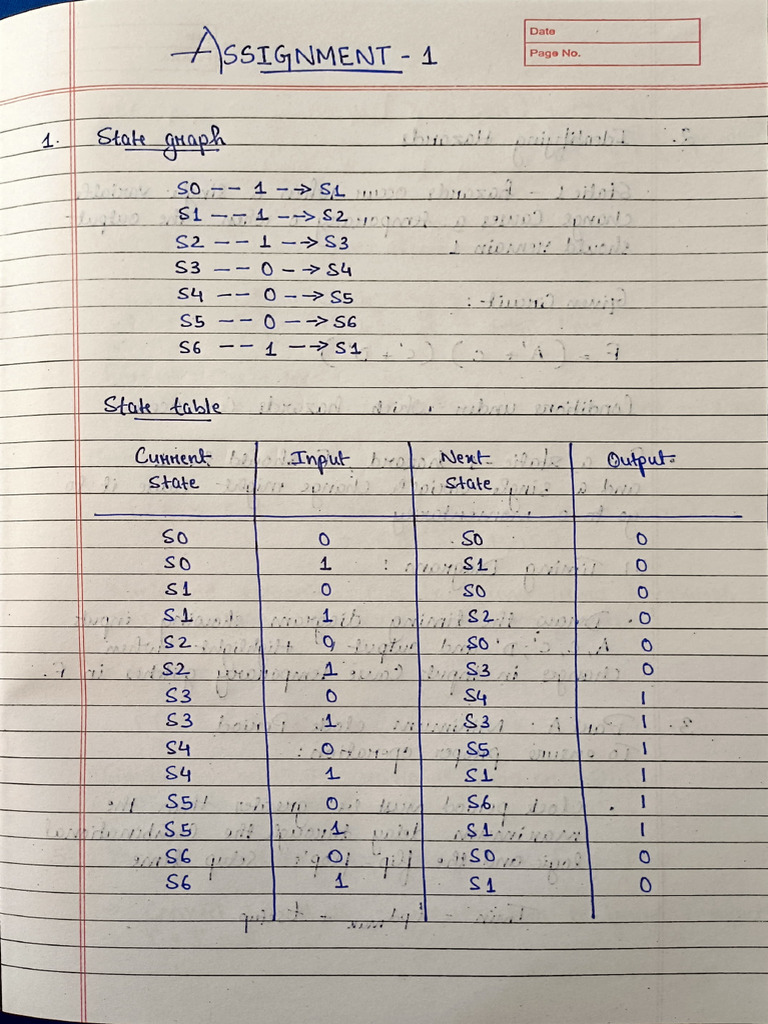 Date
ASSIGNMENT - 1
Page No.
1. State graph
S0 -- 1 --> S1
S1 -- 1 --> S2
S2 -- 1 --> S3
S3 -- 0 --> S4
S4 -- 0 --> S5
S5 -- 0 --> S6
S6 -- 1 --> S1
State table
Current State Input Next State Output
S0 0 S0 0
S0 1 S1 0
S1 0 S0 0
S1 1 S2 0
S2 0 S0 0
S2 1 S3 0
S3 0 S4 1
S3 1 S3 1
S4 0 S5 1
S4 1 S1 1
S5 0 S6 1
S5 1 S1 1
S6 0 S0 0
S6 1 S1 0